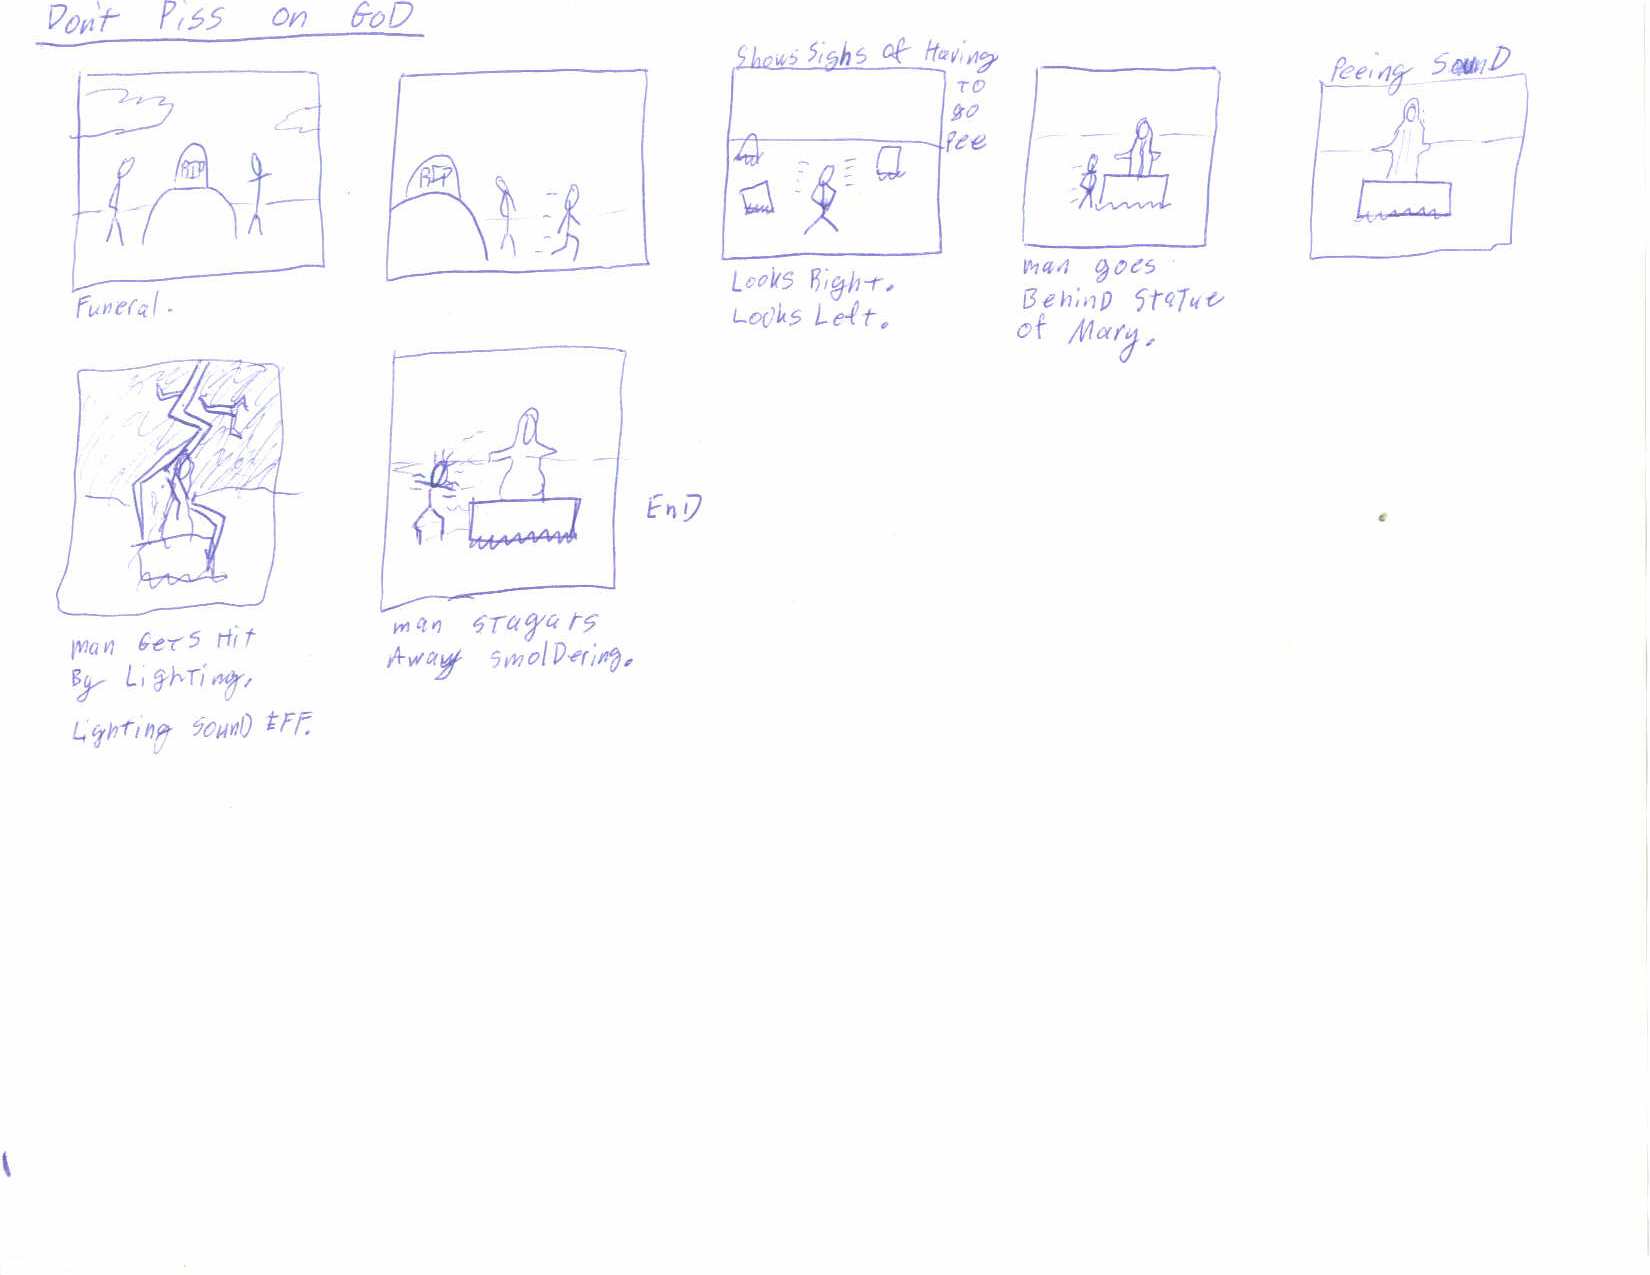 Don't Piss on GoD
RIP
Funeral.
RIP
Shows Sighs of Having
TO
go
Pee
Looks Right.
Looks Left.
man goes
BehinD STaTue
of Mary.
Peeing SounD
man GeTS Hit
By LighTing.
Lighting SounD EFF.
man STagars
Away smolDering.
EnD